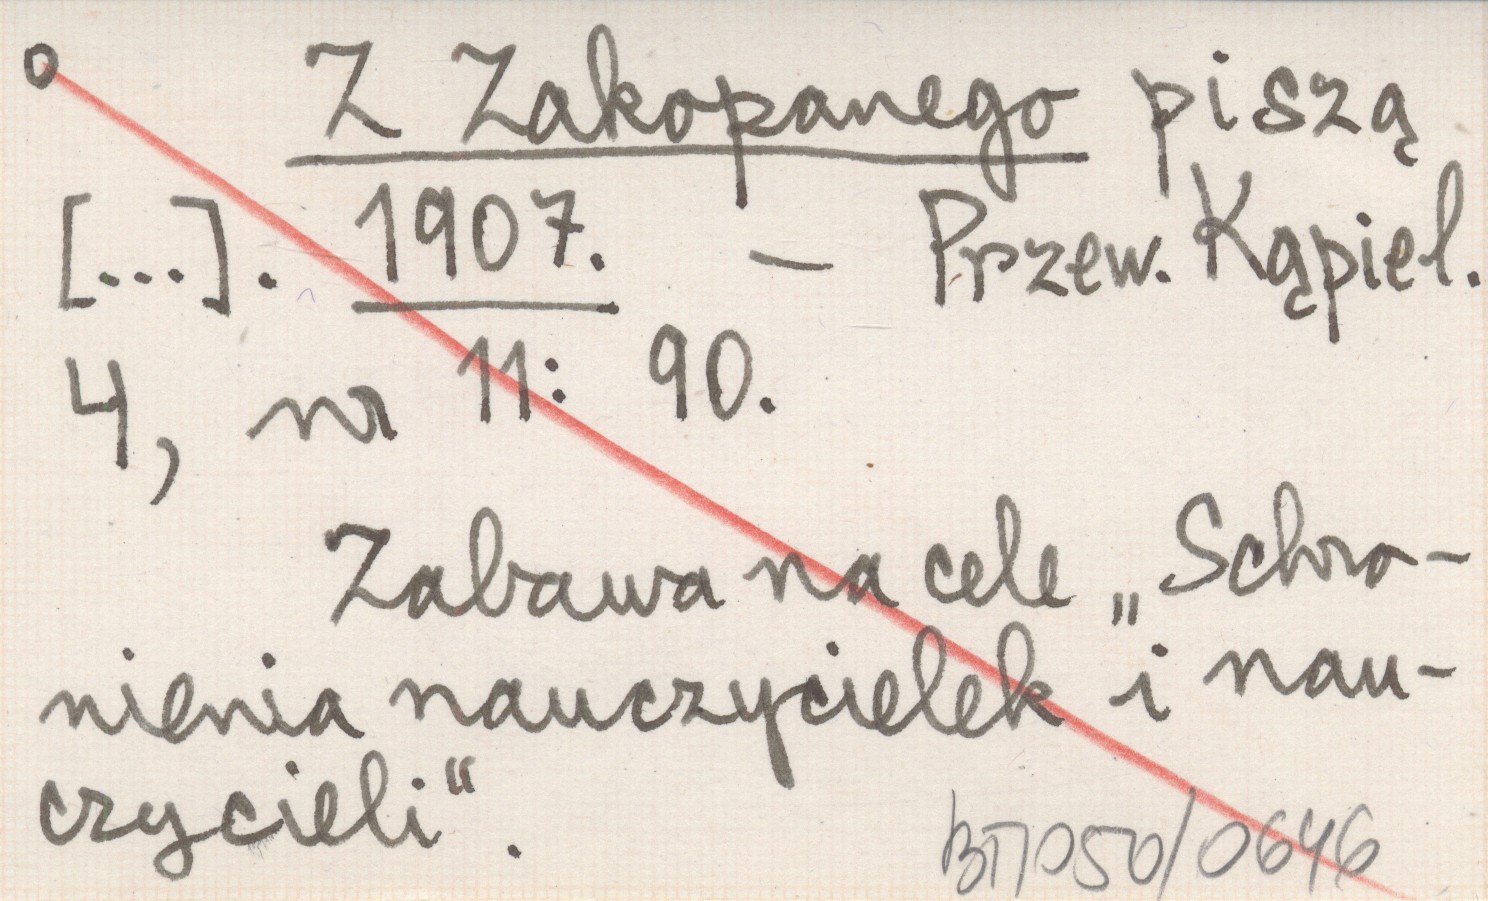 o Z Zakopanego piszą
[...]. 1907. – Przew. Kąpiel.
4, nr 11: 90.
Zabawa na cele „Schro-
nienia nauczycielek i nau-
czycieli“.